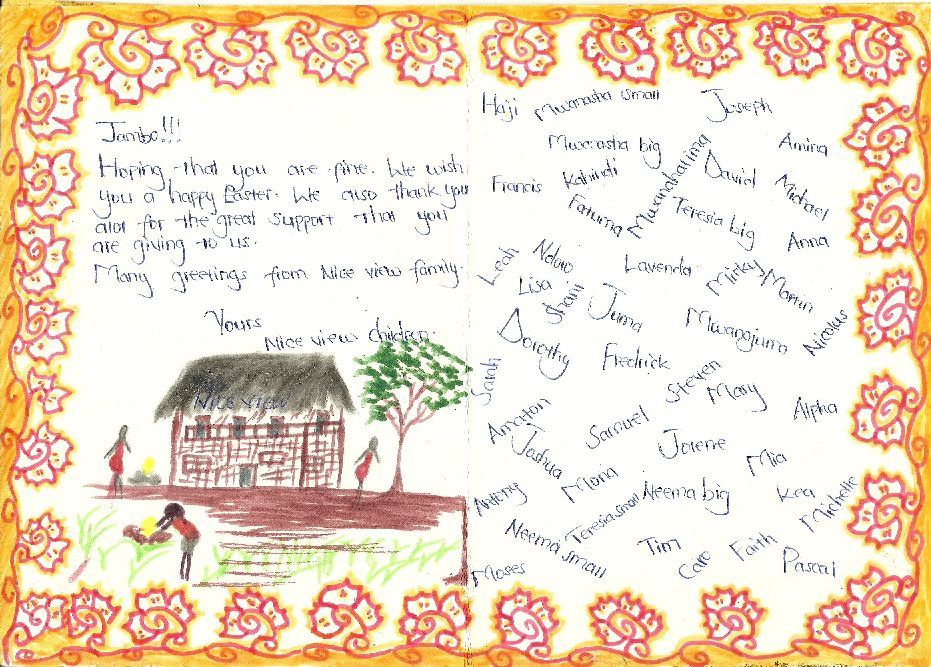 Jambo!!!
Hoping that you are fine. We wish
you a happy Easter. We also thank you
alot for the great support that you
are giving to us.
Many greetings from Nice view family.
Yours
Nice view children.
NICE VIEW
Haji
Mwanasha small
Joseph
Mwanasha big
Amina
Francis
Kahindi
Mwanahaling
David
Michael
Fatuma
Teresia big
Anna
Leah
Nduro
Lavenda
Micky
Martin
Lisa
Shani
Juma
Mwangjuma
Nicolus
Dorothy
Fredrick
Sarah
Steven
Mary
Alpha
Amaton
Samuel
Joshua
Jorene
Mia
Antony
Maria
Neema big
Kea
Michelle
Teresia small
Neema small
Tim
Caro
Faith
Pascal
Moses